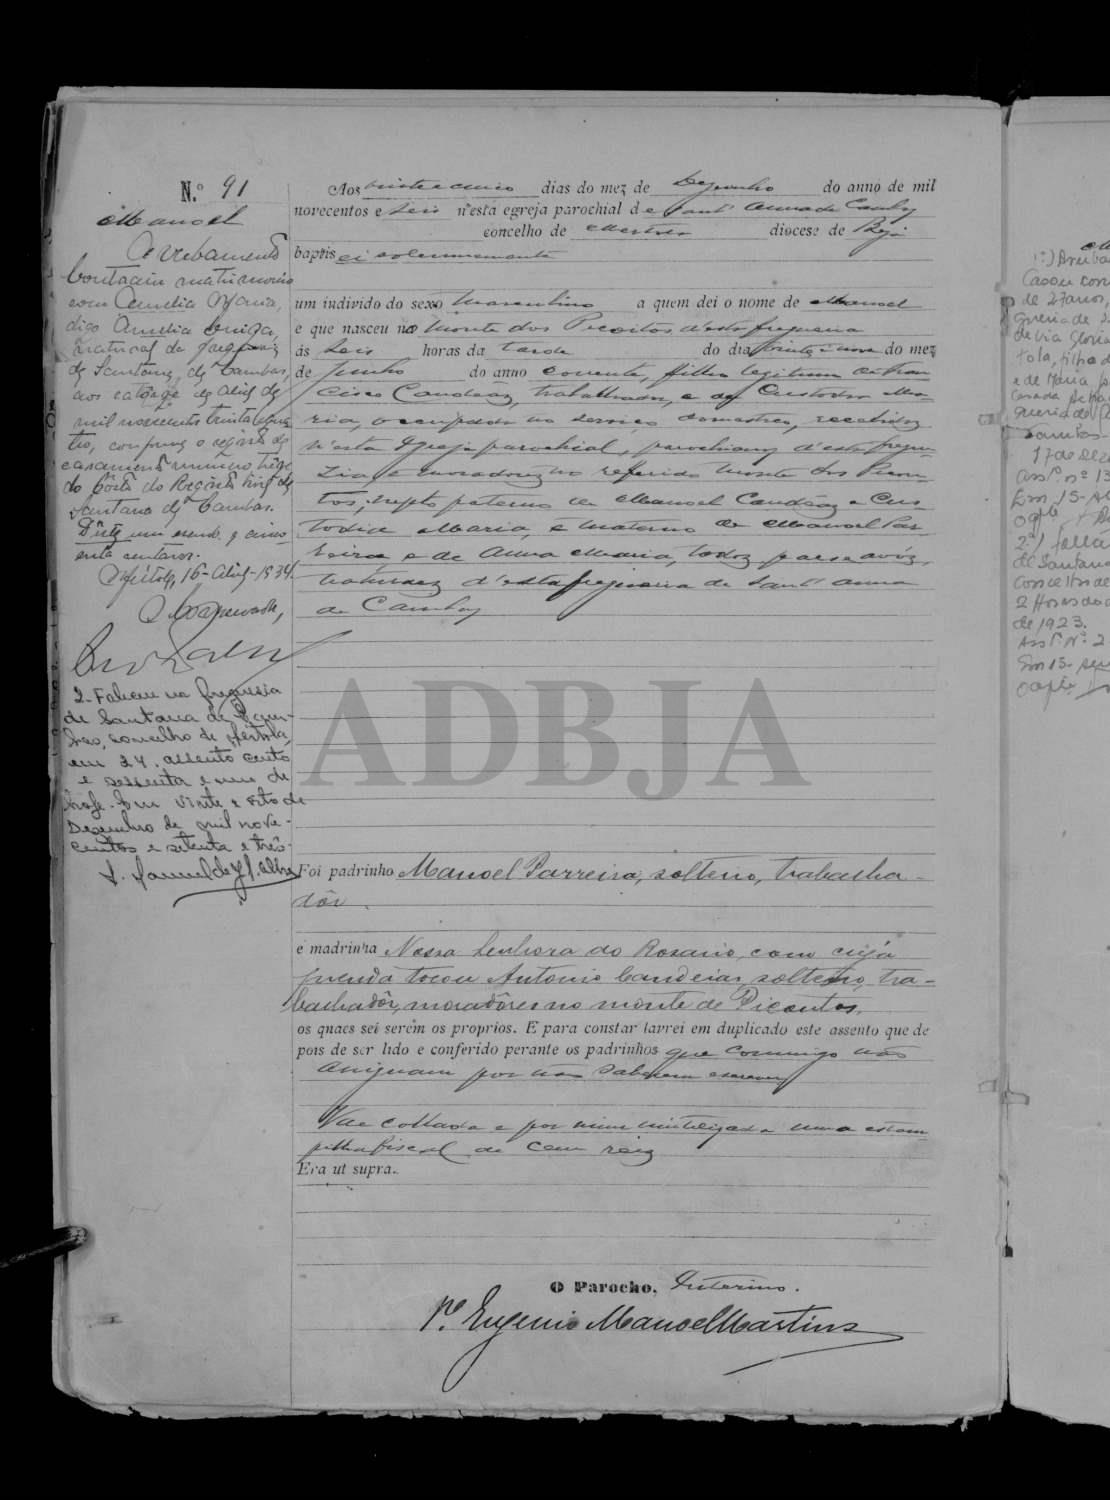 N.º 91
Manoel
Averbamento
Contraiu matrimonio
com Amelia Maria,
digo Amelia
natural da freguesia
de Santana de Cambas,
aos catorze de Abril de
mil novecentos trinta e qua
tro, conforme o registo de
casamento numero treze
do Posto do Registo Civil de
Santana de Cambas.
Dute um escudo e cinco
enta centavos.
Mertola, 16-Abril-1934.
O Conservador,
2- Faleceu na freguesia
de Santana de
concelho de Mertola,
em 24. assento cento
e sessenta e um de
hoje. Em vinte e oito de
Dezembro de mil nove-
centos e setenta e três.
Aos vinte e cinco dias do mez de Dezembro do anno de mil
novecentos e seis n'esta egreja parochial de Sant'Anna de Cambas
concelho de Mertola diocese de Beja
baptisei solemnemente
um individo do sexo Masculino a quem dei o nome de Manoel
e que nasceu no Monte dos Picoitos d'esta freguesia
ás seis horas da tarde do dia vinte e nove do mez
de Junho do anno corrente, filho legitimo de Fran
cisco Candeias, trabalhador, e de Custodia Ma
ria, occupada no serviço domestico, recebidos
n'esta Igreja parochial, parochianos d'esta fregue
zia e moradores no referido monte dos Picoi
tos; neto paterno de Manoel Candeias e Cus
todia Maria, e materno de Manoel Par
reira e de Anna Maria, todos
naturaes d'esta freguezia de Sant'Anna
de Cambas
ADBJA
Foi padrinho Manoel Parreira, solteiro, trabalha-
dôr.
e madrinha Nossa Senhora do Rosario, com cuja
prenda tocou Antonio Candeias, solteiro, tra-
balhadôr, moradôres no monte de Picoitos,
os quaes sei serem os proprios. E para constar lavrei em duplicado este assento que de
pois de ser lido e conferido perante os padrinhos que commigo não
assignam por não saberem escrever
Vae collada e por mim inutilizada uma estam-
pilha fiscal de cem reis
Era ut supra.
O Parocho, Interino.
P.e Eugenio Manoel Martins
Casou com
de 27 anos,
de Via Gloria
tola, filha d
e de Maria
17 de Dez
Ass.º nº 13
Em 15-
de Santana
2 Horas da
de 1923.
Ass.º Nº 2
Em 15-